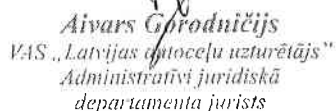 Aivars Gorodničijs
VAS „Latvijas autoceļu uzturētājs”
Administratīvi juridiskā
departamenta jurists